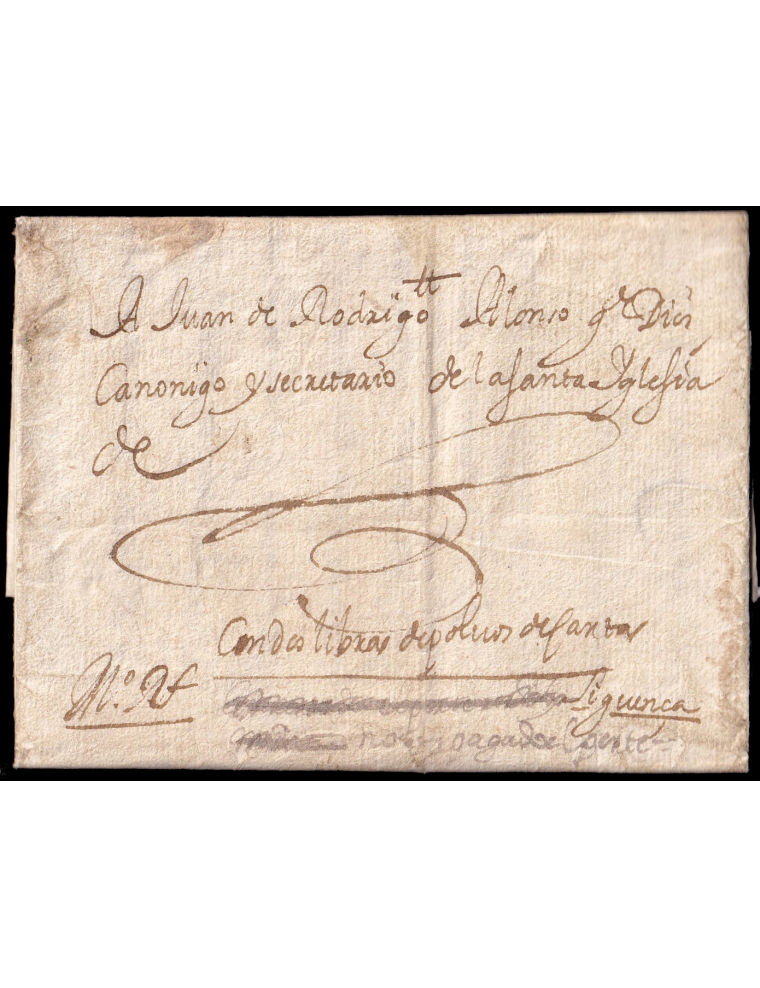 tt
A Juan de Rodrigo Alonso gᵉ Dios
Canonigo y secretario de la santa Yglesia
de
Con dos libras de poluos de
Mº Rᶠ
Siguença
no pagado el porte